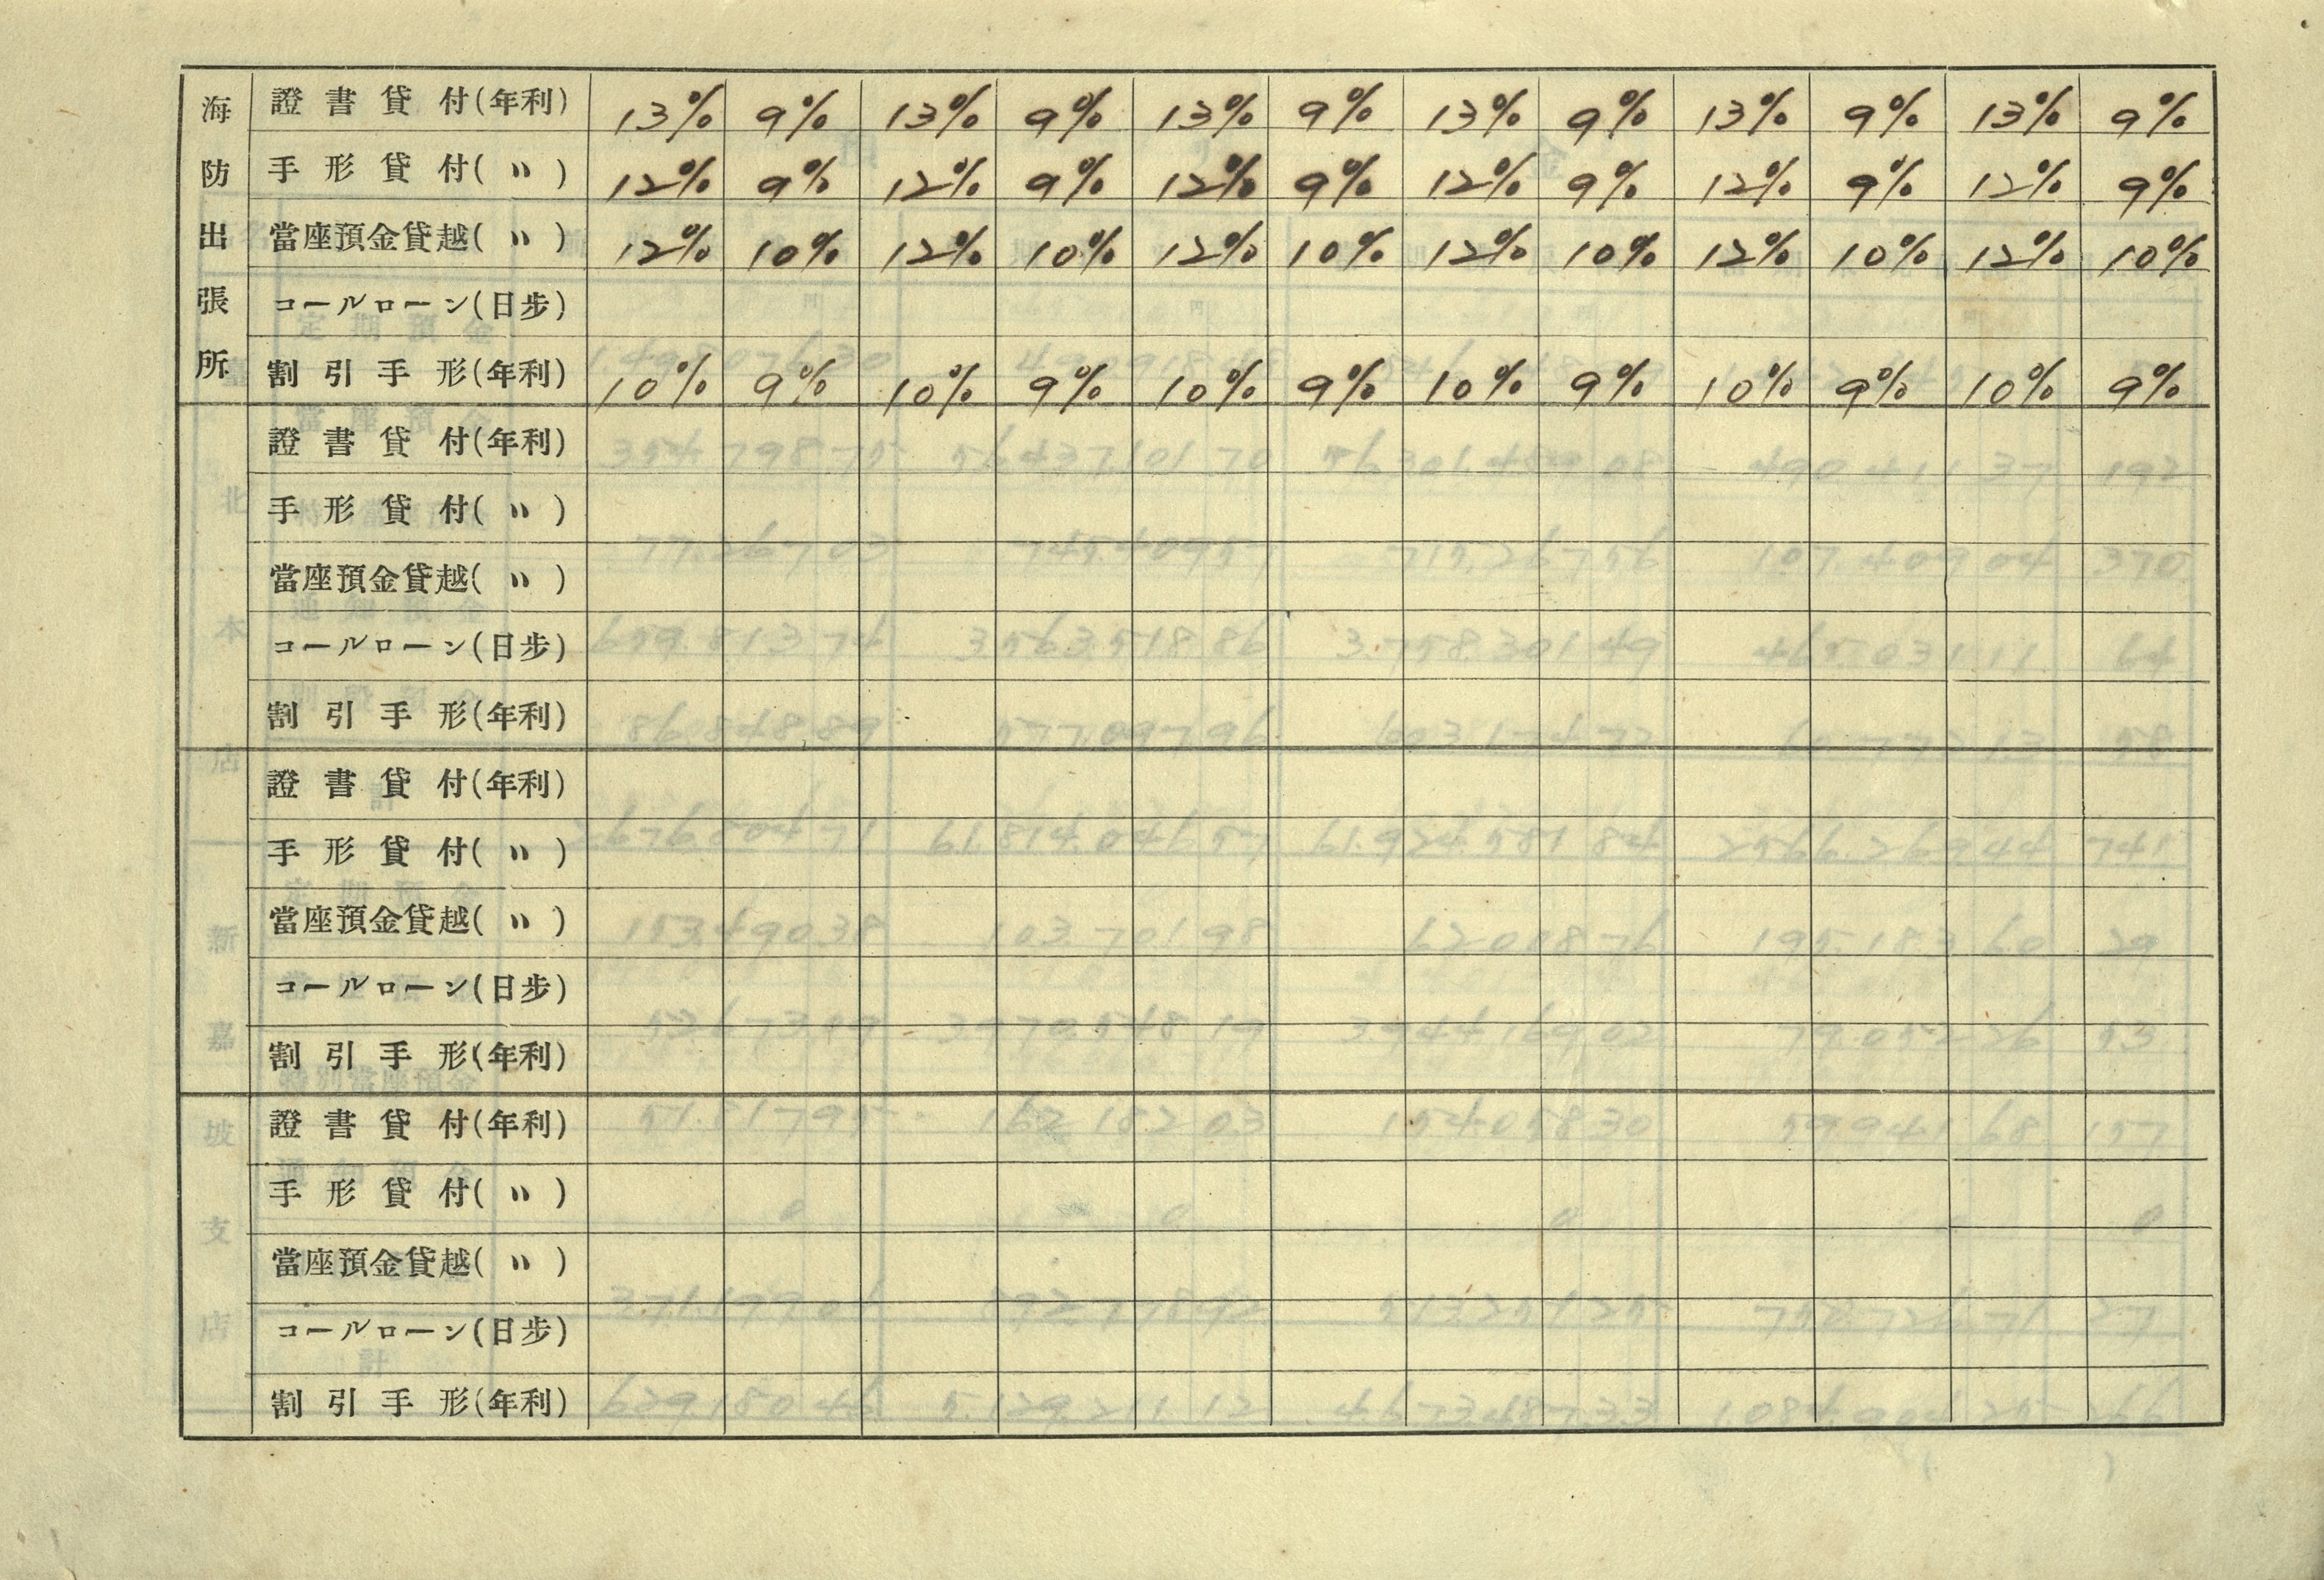 海防出張所
證書貸付(年利) 13% 9% 13% 9% 13% 9% 13% 9% 13% 9% 13% 9%
手形貸付( 〃 ) 12% 9% 12% 9% 12% 9% 12% 9% 12% 9% 12% 9%
當座預金貸越( 〃 ) 12% 10% 12% 10% 12% 10% 12% 10% 12% 10% 12% 10%
コールローン(日歩)
割引手形(年利) 10% 9% 10% 9% 10% 9% 10% 9% 10% 9% 10% 9%
證書貸付(年利)
手形貸付( 〃 )
當座預金貸越( 〃 )
コールローン(日歩)
割引手形(年利)
證書貸付(年利)
手形貸付( 〃 )
當座預金貸越( 〃 )
コールローン(日歩)
割引手形(年利)
證書貸付(年利)
手形貸付( 〃 )
當座預金貸越( 〃 )
コールローン(日歩)
割引手形(年利)